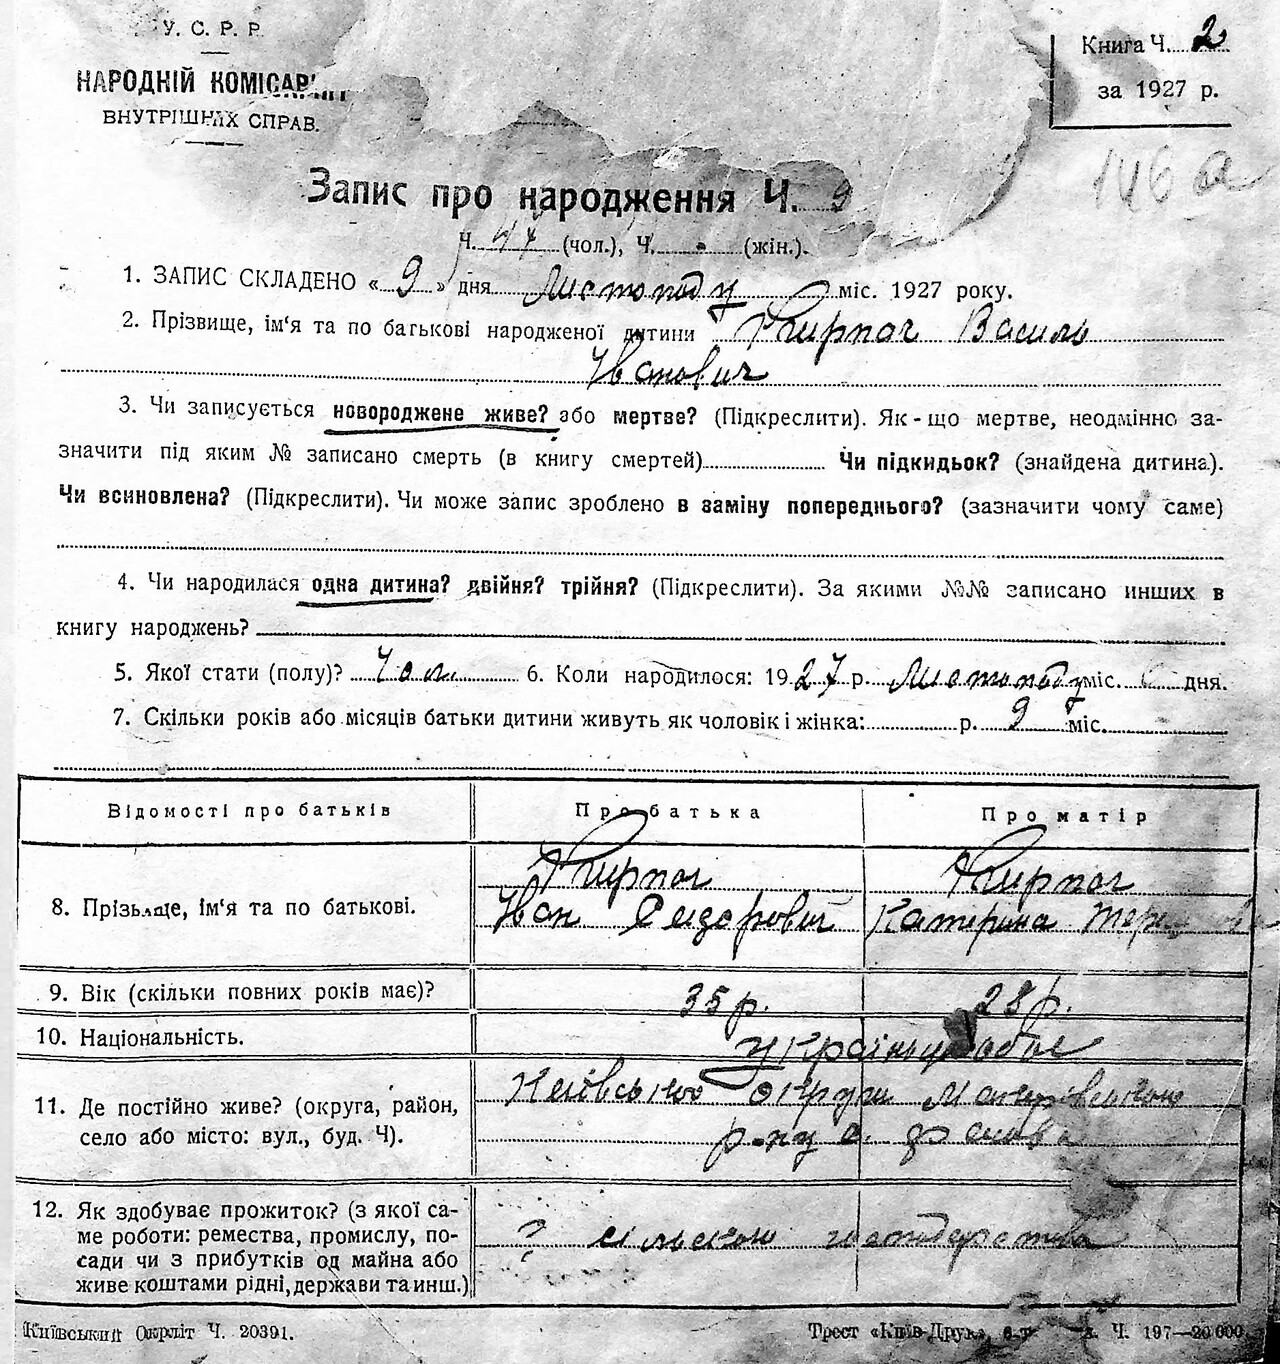 У. С. Р. Р.
НАРОДНІЙ КОМІСАРІЯТ
ВНУТРІШНІХ СПРАВ.
Книга Ч. 2
за 1927 р.
146 а
Запис про народження Ч. 9
Ч. 47 (чол.), Ч. (жін.).
1. ЗАПИС СКЛАДЕНО « 9 » дня Листопаду міс. 1927 року.
2. Прізвище, ім'я та по батькові народженої дитини Кирпач Василь
Іванович
3. Чи записується новороджене живе? або мертве? (Підкреслити). Як-що мертве, неодмінно за-
значити під яким № записано смерть (в книгу смертей) Чи підкидьок? (знайдена дитина).
Чи всиновлена? (Підкреслити). Чи може запис зроблено в заміну попереднього? (зазначити чому саме)
4. Чи народилася одна дитина? двійня? трійня? (Підкреслити). За якими №№ записано инших в
книгу народжень?
5. Якої стати (полу)? Чол. 6. Коли народилося: 1927 р. Листопаду міс. дня.
7. Скільки років або місяців батьки дитини живуть як чоловік і жінка: р. 9 міс.
Відомості про батьків Про батька Про матір
8. Прізвище, ім'я та по батькові. Кирпач Кирпач
Іван Сидорович Катерина
9. Вік (скільки повних років має)? 35 р. 28 р.
10. Національність. українці обоє
11. Де постійно живе? (округа, район, Київської округи
село або місто: вул., буд. Ч). р-ну с.
12. Як здобуває прожиток? (з якої са-
ме роботи: ремества, промислу, по- ? сільского господарства
сади чи з прибутків од майна або
живе коштами рідні, держави та инш.)
Київський Окрліт Ч. 20391.
Трест «Київ-Друк», Ч. 197—20 000